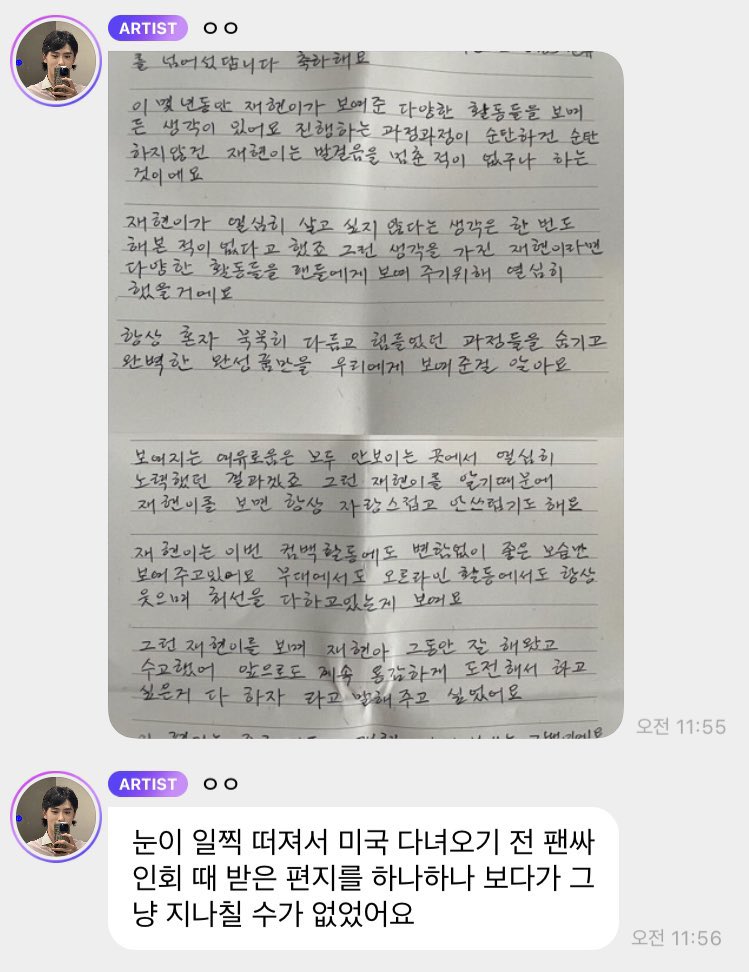 ARTIST ㅇㅇ
를 넘어섰답니다 축하해요
이 몇년동안 재현이가 보여준 다양한 활동들을 보며
든 생각이 있어요 진행하는 과정과정이 순탄하건 순탄
하지않건 재현이는 발걸음을 멈춘 적이 없구나 하는
것이에요
재현이가 열심히 살고 싶지 않다는 생각은 한 번도
해본 적이 없다고 했죠 그런 생각을 가진 재현이라면
다양한 활동들을 팬들에게 보여 주기위해 열심히
했을거에요
항상 혼자 묵묵히 다듬고 힘들었던 과정들을 숨기고
완벽한 완성품만을 우리에게 보여준걸 알아요
보여지는 여유로움은 모두 안보이는 곳에서 열심히
노력했던 결과겠죠 그런 재현이를 알기때문에
재현이를 보면 항상 자랑스럽고 안쓰럽기도 해요
재현이는 이번 컴백활동에도 변함없이 좋은 모습만
보여주고있어요 무대에서도 오프라인 활동에서도 항상
웃으며 최선을 다하고있는게 보여요
그런 재현이를 보며 재현아 그동안 잘 해왔고
수고했어 앞으로도 계속 용감하게 도전해서 하고
싶은거 다 하자 라고 말해주고 싶었어요
오전 11:55
ARTIST ㅇㅇ
눈이 일찍 떠져서 미국 다녀오기 전 팬싸
인회 때 받은 편지를 하나하나 보다가 그
냥 지나칠 수가 없었어요
오전 11:56